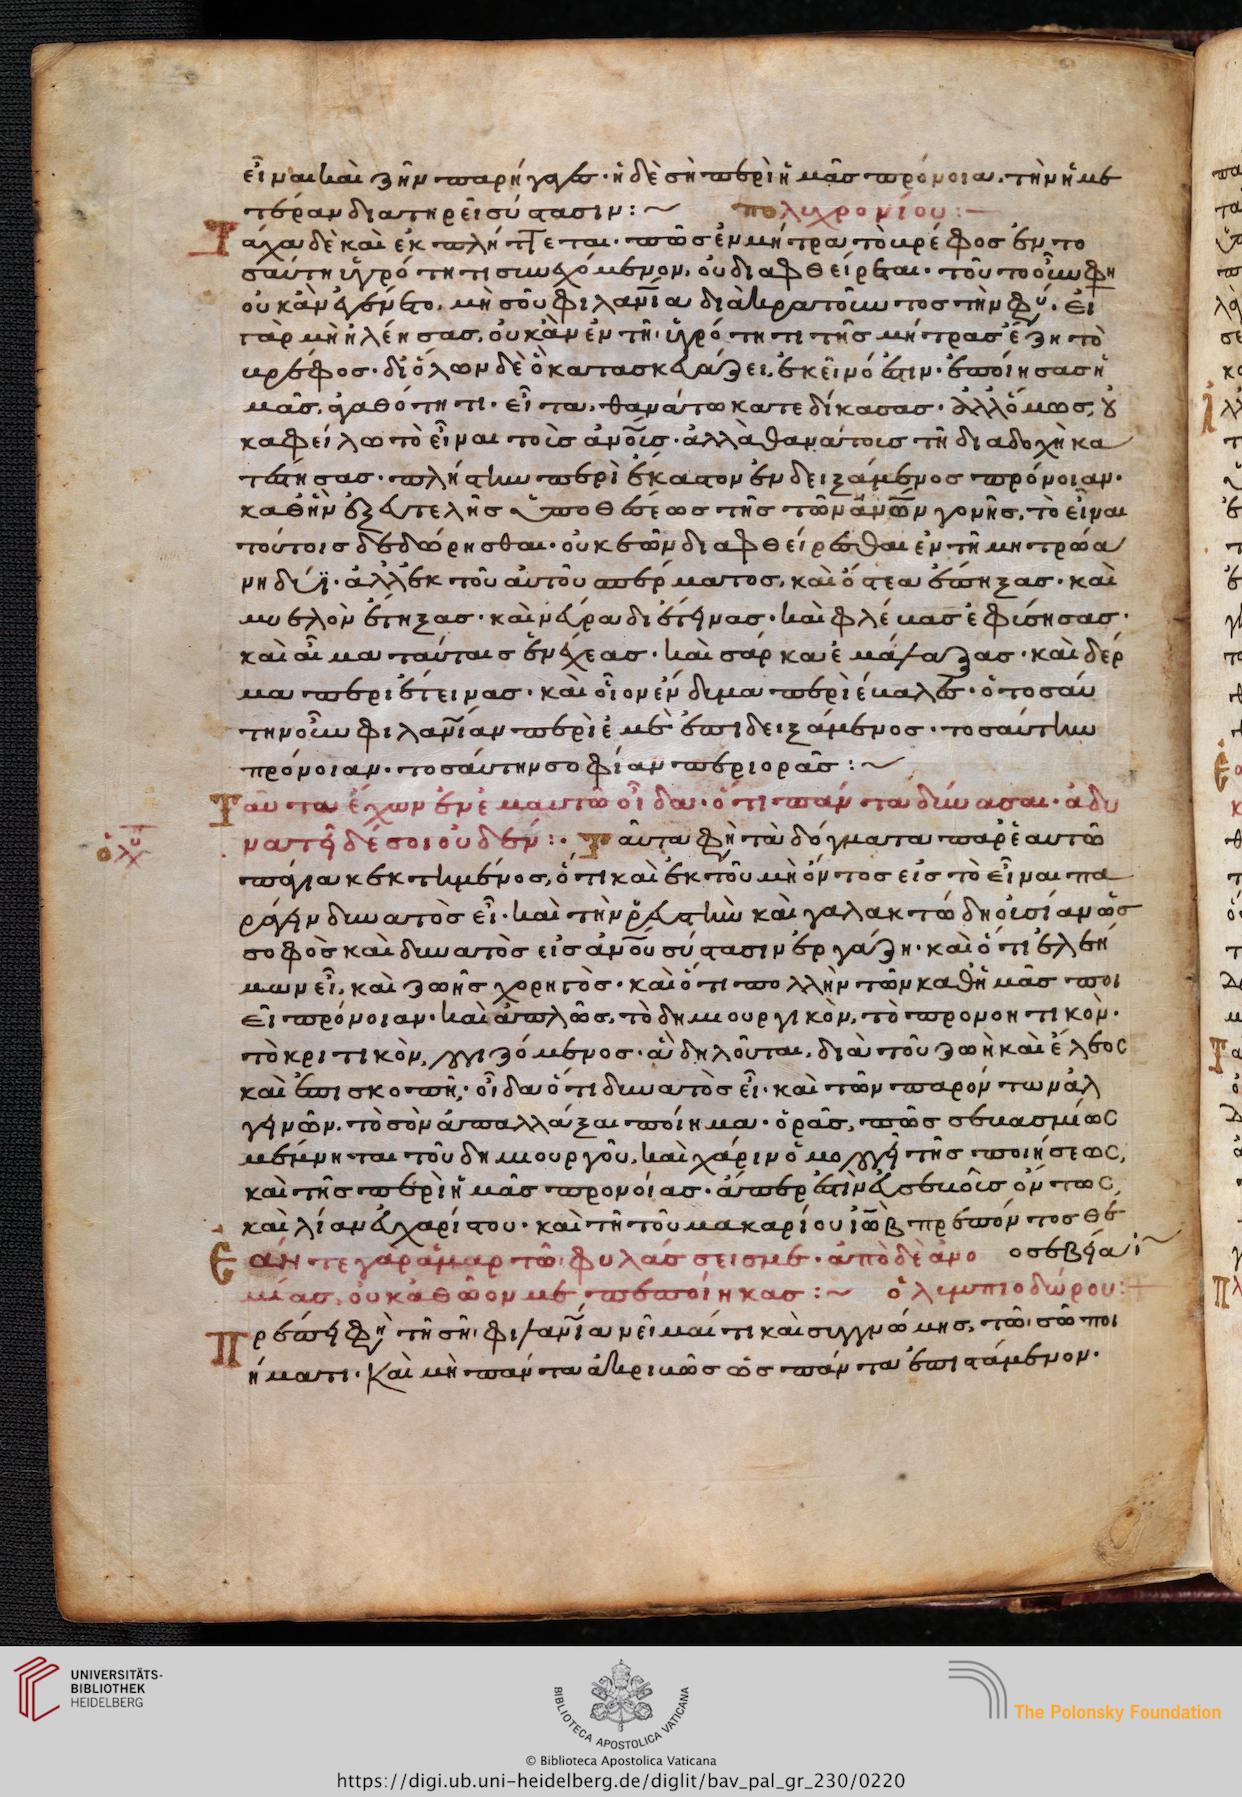 εἶναι καὶ ζῆν παρήγαγε· ἡ δὲ σὴ περὶ ἡμᾶς πρόνοια, τὴν ἡμε
τέραν διατηρεῖ σύστασιν :~ πολυχρονίου :—
Τάχα δὲ καὶ ἐκπλήττεται· πῶς ἐν μήτρα τὸ βρέφος ἐν το
σαύτη ὑγρότητι συνεχόμενον, οὐ διαφθείρεται· τοῦτο οὖν φη
οὐκ ἂν ἐγένετο, μὴ σοῦ φιλανία διακρατοῦντος τὴν φύ· εἰ
γὰρ μὴ ἠλέησας, οὐκ ἂν ἐν τῆ ὑγρότητι τῆς μήτρας ἔζη τὸ
βρέφος· δι' ὅλων δὲ ὃ κατασκευάζει, ἐκεῖνό ἐστιν· ἐποίησας ἡ
μᾶς, ἀγαθότητι· εἶτα, θανάτω κατεδίκασας· ἀλλ' ὅμως, οὐ
κ ἀφείλω τὸ εἶναι τοῖς ἀνοις· ἀλλὰ θανάτοις τῆ διαδοχὴ κα
τέστησας· πλήστην περὶ ἕκαστον ἐνδειξάμενος πρόνοιαν·
καθ' ἣν ἐξ εὐτελῆς ὑποθέσεως τῆς τῶν ἀνων γονῆς, τὸ εἶναι
τούτοις δεδώρησθαι· οὐκ ἐῶν διαφθείρεσθαι ἐν τῆ μητρώα
νηδύϊ· ἀλλ' ἐκ τοῦ αὐτοῦ σπέρματος, καὶ ὀστέα ἔπηξας· καὶ
μυελὸν ἔτηξας· καὶ νεῦρα διέτεινας· καὶ φλέβας ἐφύσησας·
καὶ αἷμα ταύταις ἐνέχεας· καὶ σάρκα ἐμάλαξας· καὶ δέρ
μα περιέτεινας· καὶ οἷον ἔνδυμα περιέβαλες· ὁ τοσαύ
την οὖν φιλανίαν περὶ ἐμὲ ἐπιδειξάμενος· τοσαύτην
πρόνοιαν· τοσαύτην σοφίαν περιορᾶς :~
Ταῦτα ἔχων ἐν ἐμαυτῶ οἶδα· ὅτι πάντα δύνασαι· ἀδυ
νατεῖ δέ σοι οὐδέν :· Ταῦτα φη τὰ δόγματα παρ' ἑαυτῶ
πάγια κεκτημένος, ὅτι καὶ ἐκ τοῦ μὴ ὄντος εἰς τὸ εἶναι πα
ράγειν δυνατὸς εἶ· καὶ τὴν ῥευστὴν καὶ γαλακτώδη οὐσίαν ὡς
σοφὸς καὶ δυνατὸς εἰς ἀνου σύστασιν ἐργάζη· καὶ ὅτι ἐλεή
μων εἶ, καὶ ζωῆς χορηγὸς· καὶ ὅτι πολλὴν τῶν καθ' ἡμᾶς ποι
εῖ πρόνοιαν· καὶ ἁπλῶς, τὸ δημιουργικὸν, τὸ προνοητικὸν·
τὸ κριτικὸν, λογιζόμενος· ἃ δηλοῦται, διὰ τοῦ ζωὴ καὶ ἔλεος
καὶ ἐπισκοπῆ· οἶδα ὅτι δυνατὸς εἶ· καὶ τῶν παρόντων ἀλ
γεινῶν, τὸ σὸν ἀπαλλάξαι ποίημα· ὁρᾶς, πῶς σεβασμίως
μέμνηται τοῦ δημιουργοῦ, καὶ χάριν ὁμολογεῖ τῆς ποιήσεως,
καὶ τῆς περὶ ἡμᾶς προνοίας· ἅπερ ἐστὶν εὐσεβοῖς ὄντως,
καὶ λίαν εὐχαρίστου· καὶ τῆ τοῦ μακαρίου ἰὼβ πρέποντος θε
οσεβεία
Ἐάν τε γὰρ ἁμαρτῶ· φυλάσσεις με· ἀπὸ δὲ ἀνο
μίας, οὐκ ἀθῶον με πεποίηκας :~ ὀλυμπιοδώρου :
Πρέπει φη τῆ σῆ φιλανία νεῖμαί τι καὶ συγγνώμης, τῶ σῶ ποι
ήματι. Καὶ μὴ πάντα ἀκριβῶς ὡς πάντα ἐπιστάμενον.
UNIVERSITÄTS-
BIBLIOTHEK
HEIDELBERG
BIBLIOTECA APOSTOLICA VATICANA
The Polonsky Foundation
© Biblioteca Apostolica Vaticana
https://digi.ub.uni-heidelberg.de/diglit/bav_pal_gr_230/0220